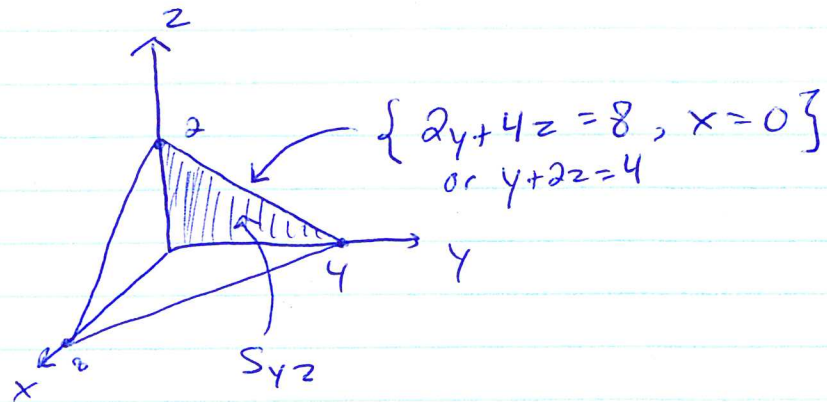 z
2
{ 2y+4z=8, x=0 }
or y+2z=4
4
y
2
x
Syz